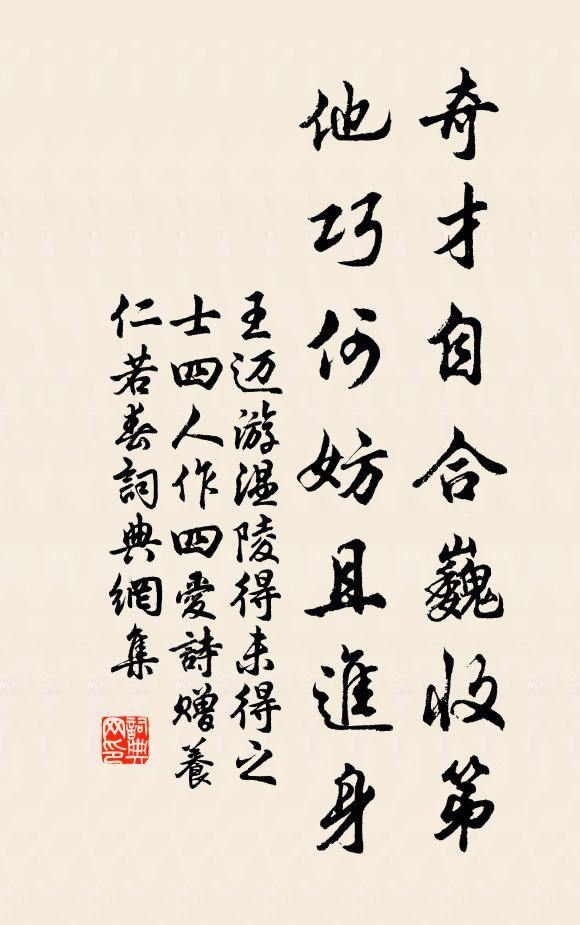 奇才自合巍收第
他巧何妨且進身
王迈游温陵得未得之
士四人作四爱詩贈養
仁若春詞典網集
詞典
网印